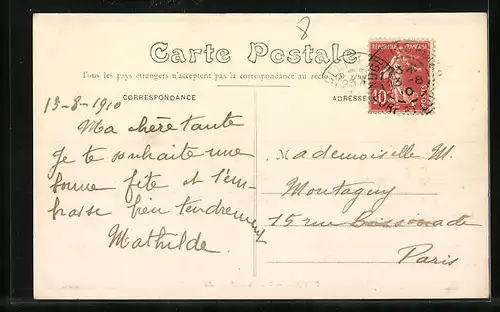 8
Carte Postale
Tous les pays étrangers n'acceptent pas la correspondance au recto
CORRESPONDANCE
ADRESSE
RÉPUBLIQUE FRANÇAISE
10
POSTES
13-8-1910
Ma chère tante
Je te souhaite une
bonne fête et t'em-
brasse bien tendrement
Mathilde.
Mademoiselle M.
Montaguy
15 rue Boissonade
Paris